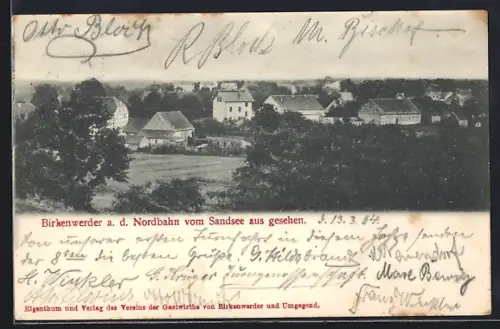 Otto Block R Block M. Bischof
Birkenwerder a. d. Nordbahn vom Sandsee aus gesehen.
d. 13.3.04.
Von unserer ersten Turnfahrt in diesem Jahre senden
der 8ten die besten Grüße. G. Hildebrandt
A. Winkler G. Krüner Jungenossenschaft. Max
Franz Winkler
Eigenthum und Verlag des Vereins der Gastwirthe von Birkenwerder und Umgegend.